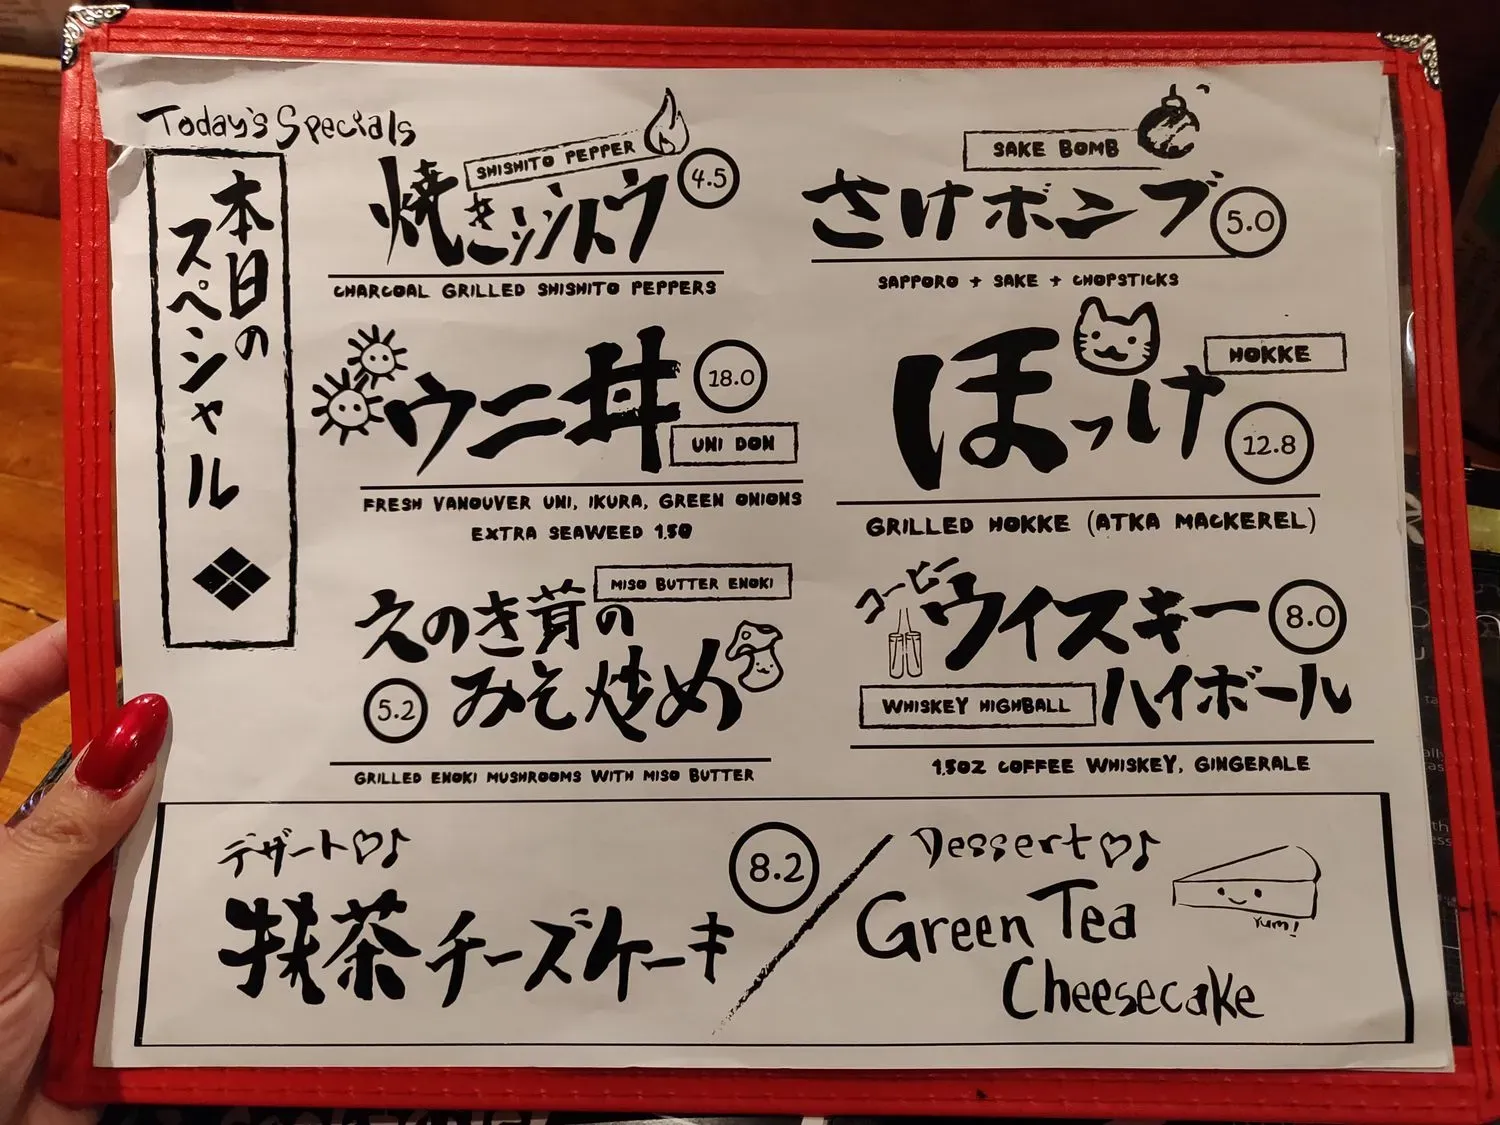 Today's Specials
本日の
スペシャル
SHISHITO PEPPER
焼きシシトウ
4.5
CHARCOAL GRILLED SHISHITO PEPPERS
SAKE BOMB
さけボンブ
5.0
SAPPORO + SAKE + CHOPSTICKS
ウニ丼
18.0
UNI DON
FRESH VANOUVER UNI, IKURA, GREEN ONIONS
EXTRA SEAWEED 1.50
ほっけ
HOKKE
12.8
GRILLED HOKKE (ATKA MACKEREL)
MISO BUTTER ENOKI
えのき茸の
みそ炒め
5.2
GRILLED ENOKI MUSHROOMS WITH MISO BUTTER
コーヒー
ウイスキー
8.0
ハイボール
WHISKEY HIGHBALL
1.5OZ COFFEE WHISKEY, GINGERALE
デザート♡♪
抹茶チーズケーキ
8.2
Dessert♡♪
Green Tea
Cheesecake
Yum!